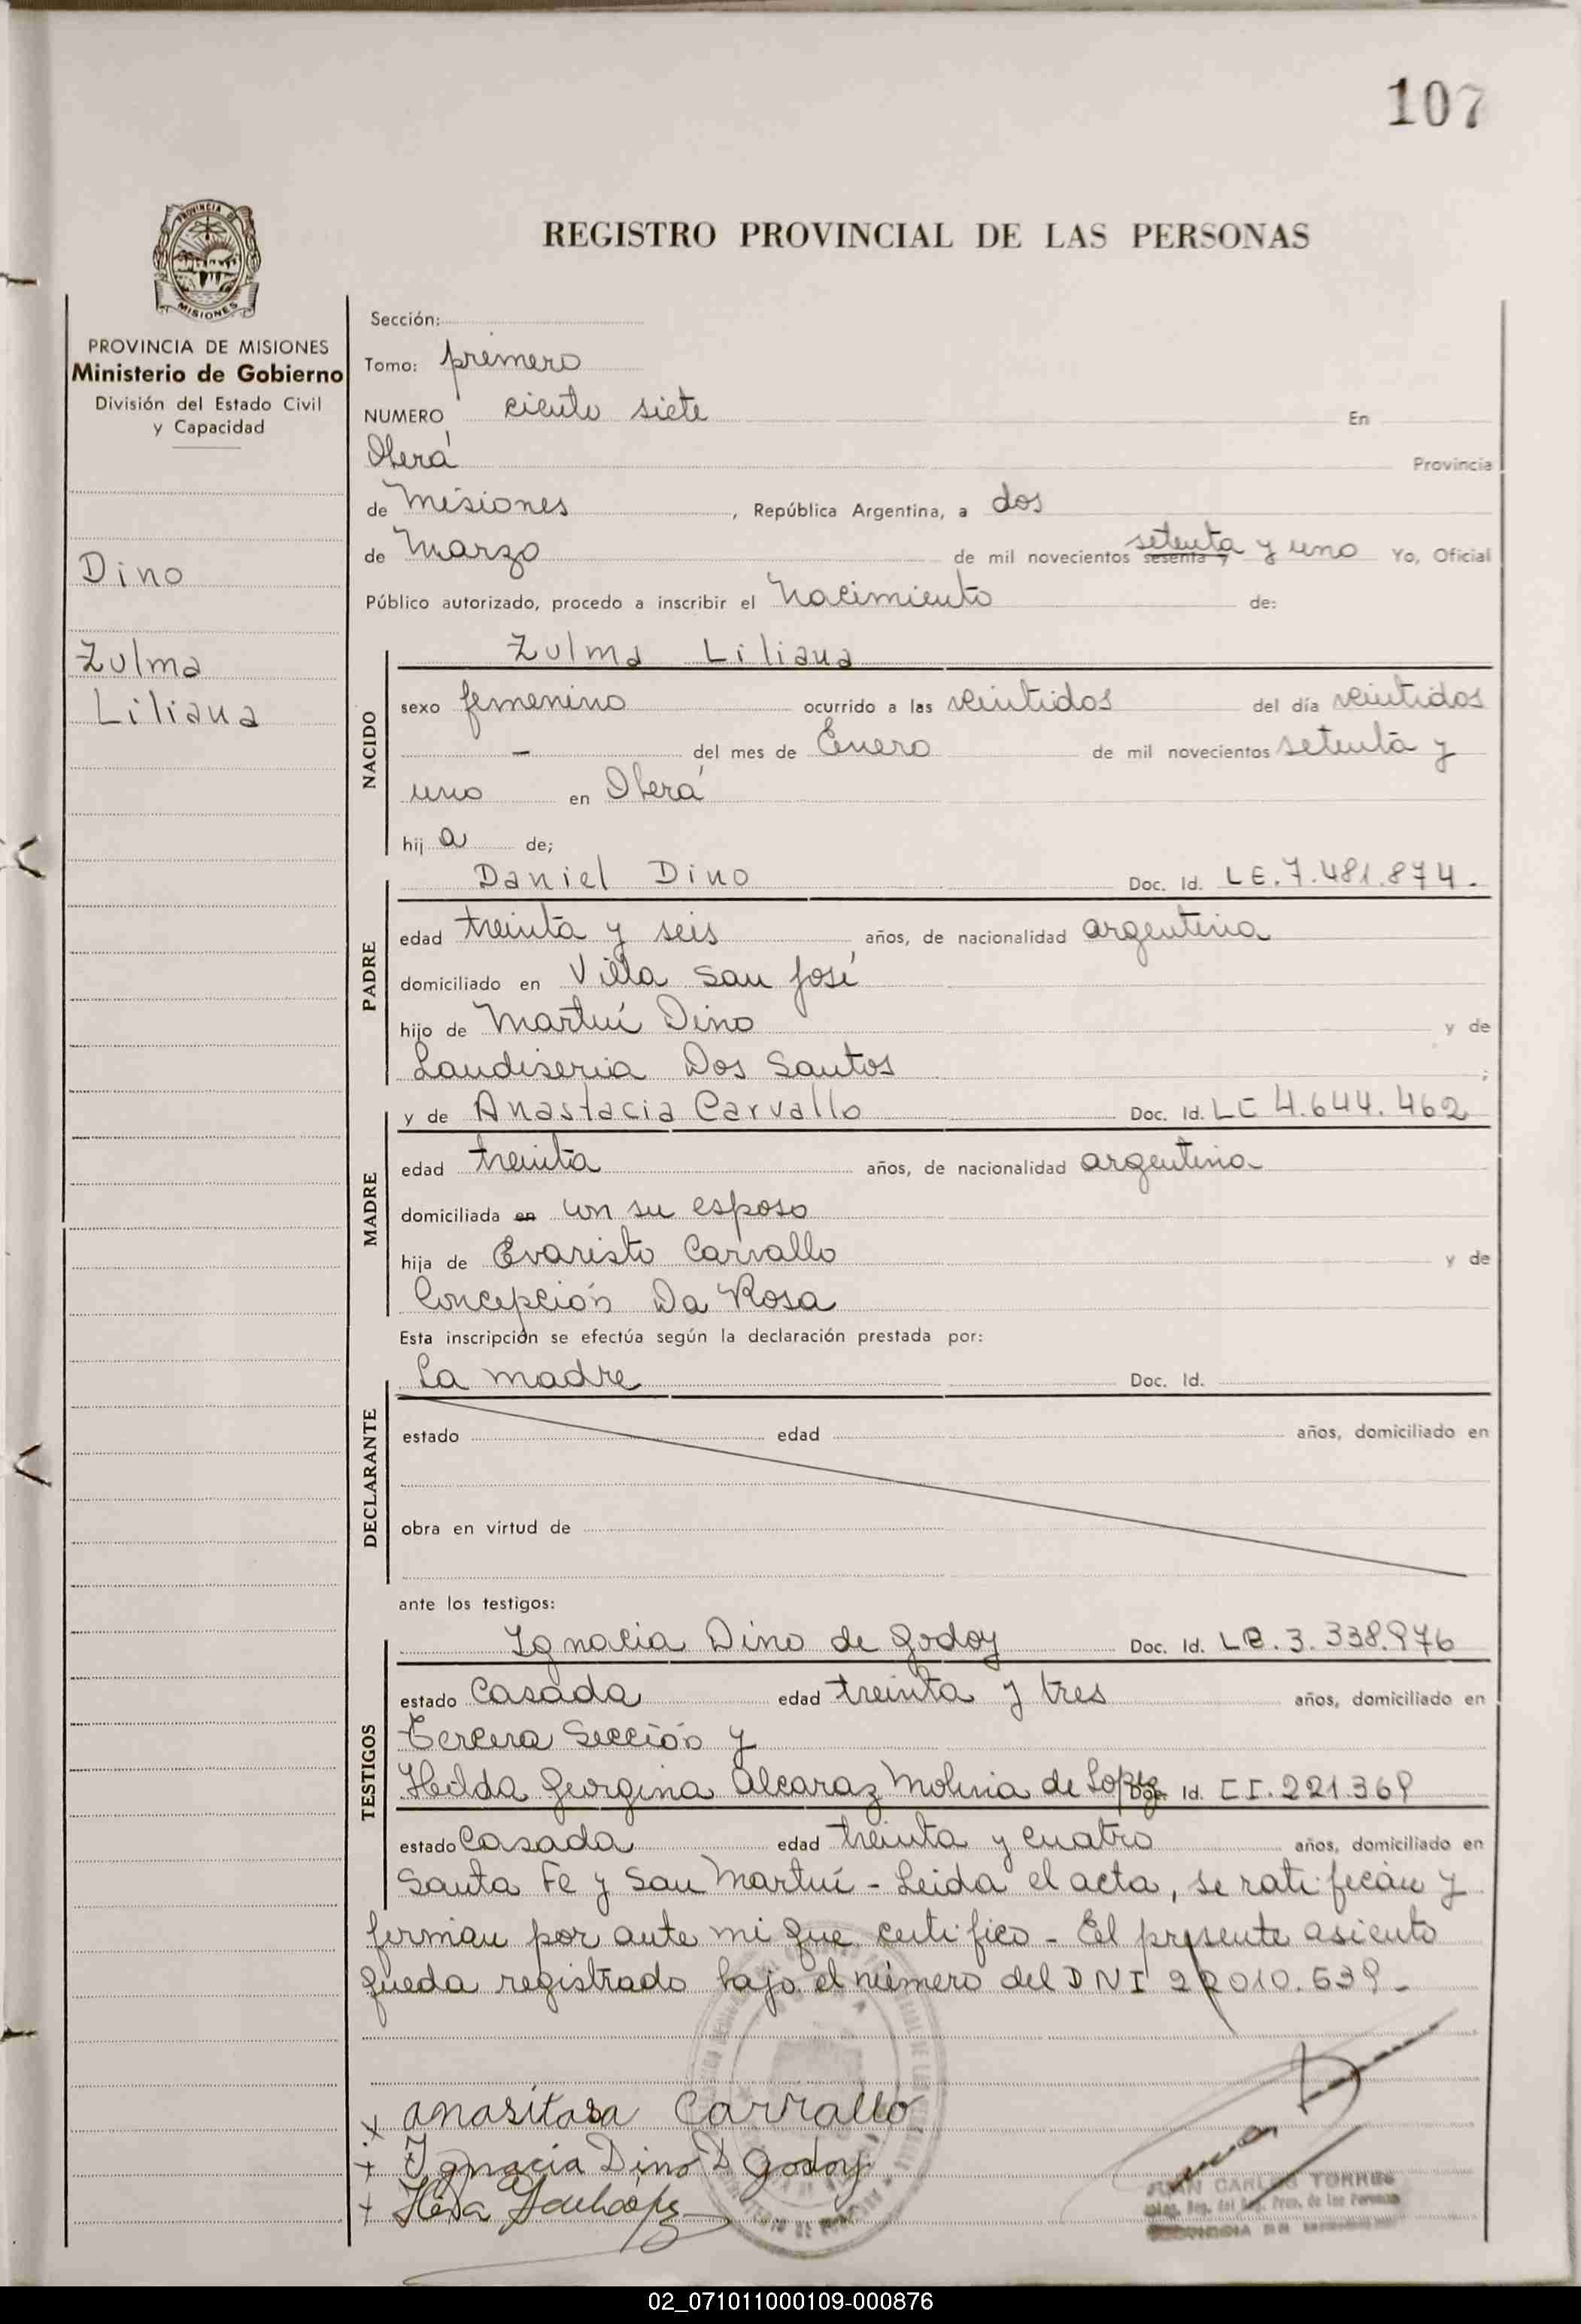 107
PROVINCIA DE
MISIONES
REGISTRO PROVINCIAL DE LAS PERSONAS
PROVINCIA DE MISIONES
Ministerio de Gobierno
División del Estado Civil
y Capacidad
Dino
Zulma
Liliana
Sección:
Tomo: primero
NUMERO ciento siete En
Oberá Provincia
de Misiones, República Argentina, a dos
de Marzo de mil novecientos sesenta y setenta y uno Yo, Oficial
Público autorizado, procedo a inscribir el Nacimiento de:
Zulma Liliana
NACIDO
sexo femenino ocurrido a las veintidos del día veintidos
- del mes de Enero de mil novecientos setenta y
uno en Oberá
hij a de;
Daniel Dino Doc. Id. LE.7.481.874.
PADRE
edad treinta y seis años, de nacionalidad argentina
domiciliado en Villa San José
hijo de Martín Dino y de
Laudiseria Dos Santos ;
y de Anastacia Carvallo Doc. Id. LC 4.644.462
MADRE
edad treinta años, de nacionalidad argentina
domiciliada en con su esposo
hija de Evaristo Carvallo y de
Concepción Da Rosa
Esta inscripción se efectúa según la declaración prestada por:
La madre Doc. Id.
DECLARANTE
estado edad años, domiciliado en
obra en virtud de
ante los testigos:
Ignacia Dino de Godoy Doc. Id. LC.3.338.976
TESTIGOS
estado Casada edad treinta y tres años, domiciliado en
Tercera Sección y
Hilda Georgina Alcaraz Molina de Lopez Doc. Id. CI.221.369
estado Casada edad treinta y cuatro años, domiciliado en
Santa Fe y San Martín - Leida el acta, se ratifican y
firman por ante mi que certifico - El presente asiento
queda registrado bajo el número del DNI 22010.639-
x anasitasa Carvallo
+ Ignacia Dino D Godoy
+
JUAN CARLOS TORRES
02_071011000109-000876